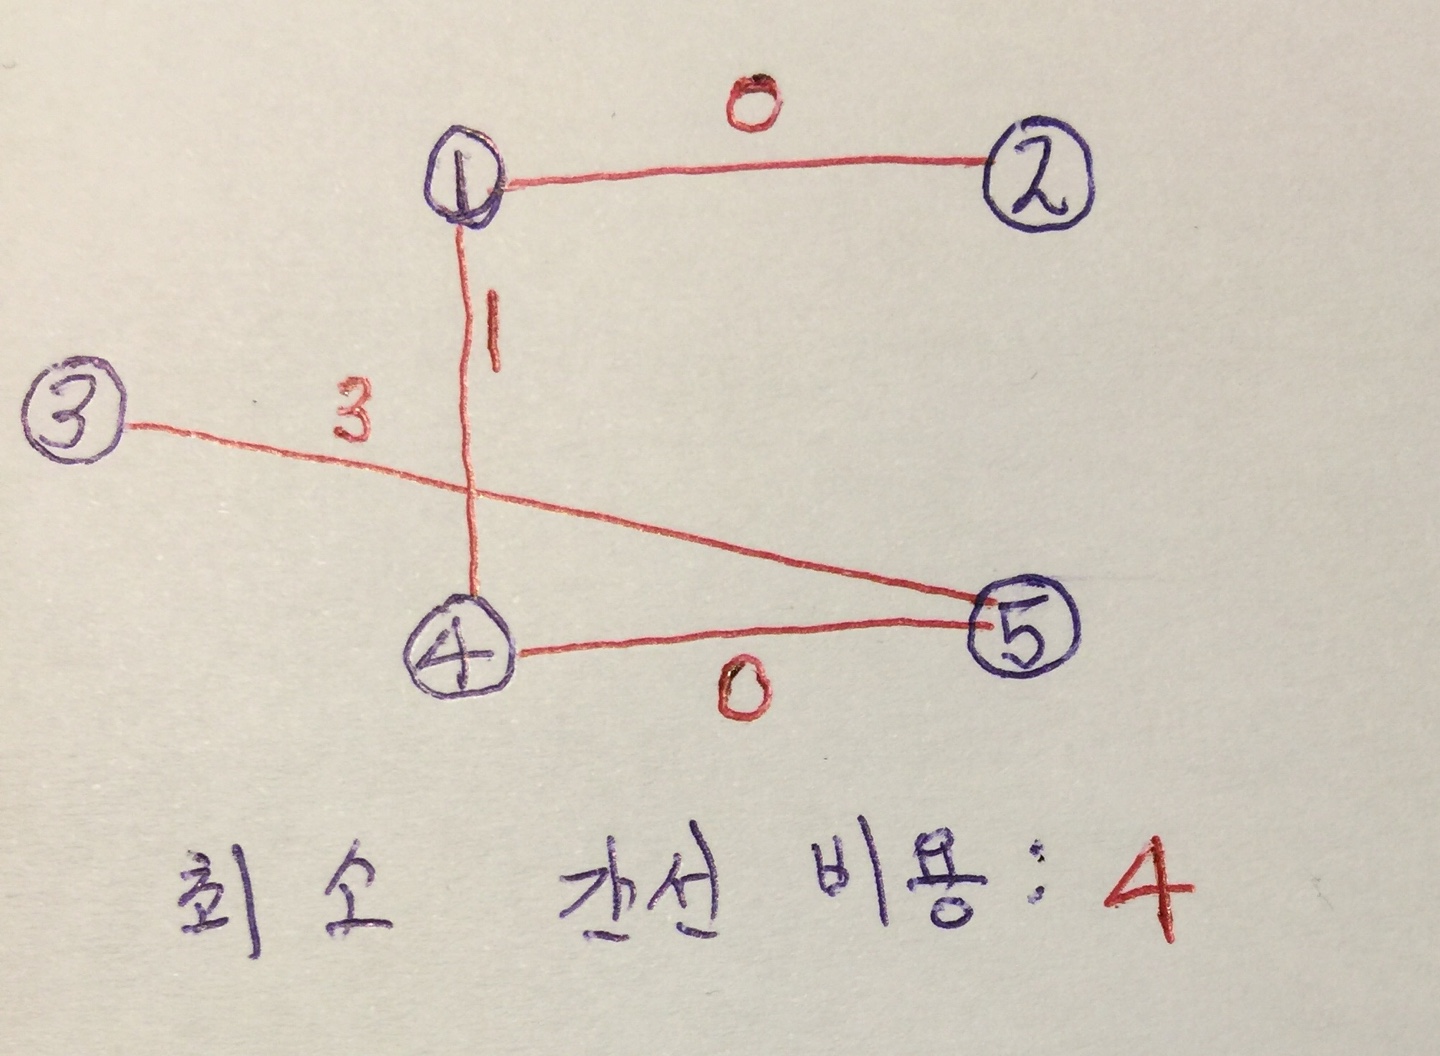 0
1 2
1
3 3
4 5
0
최소 간선 비용 : 4